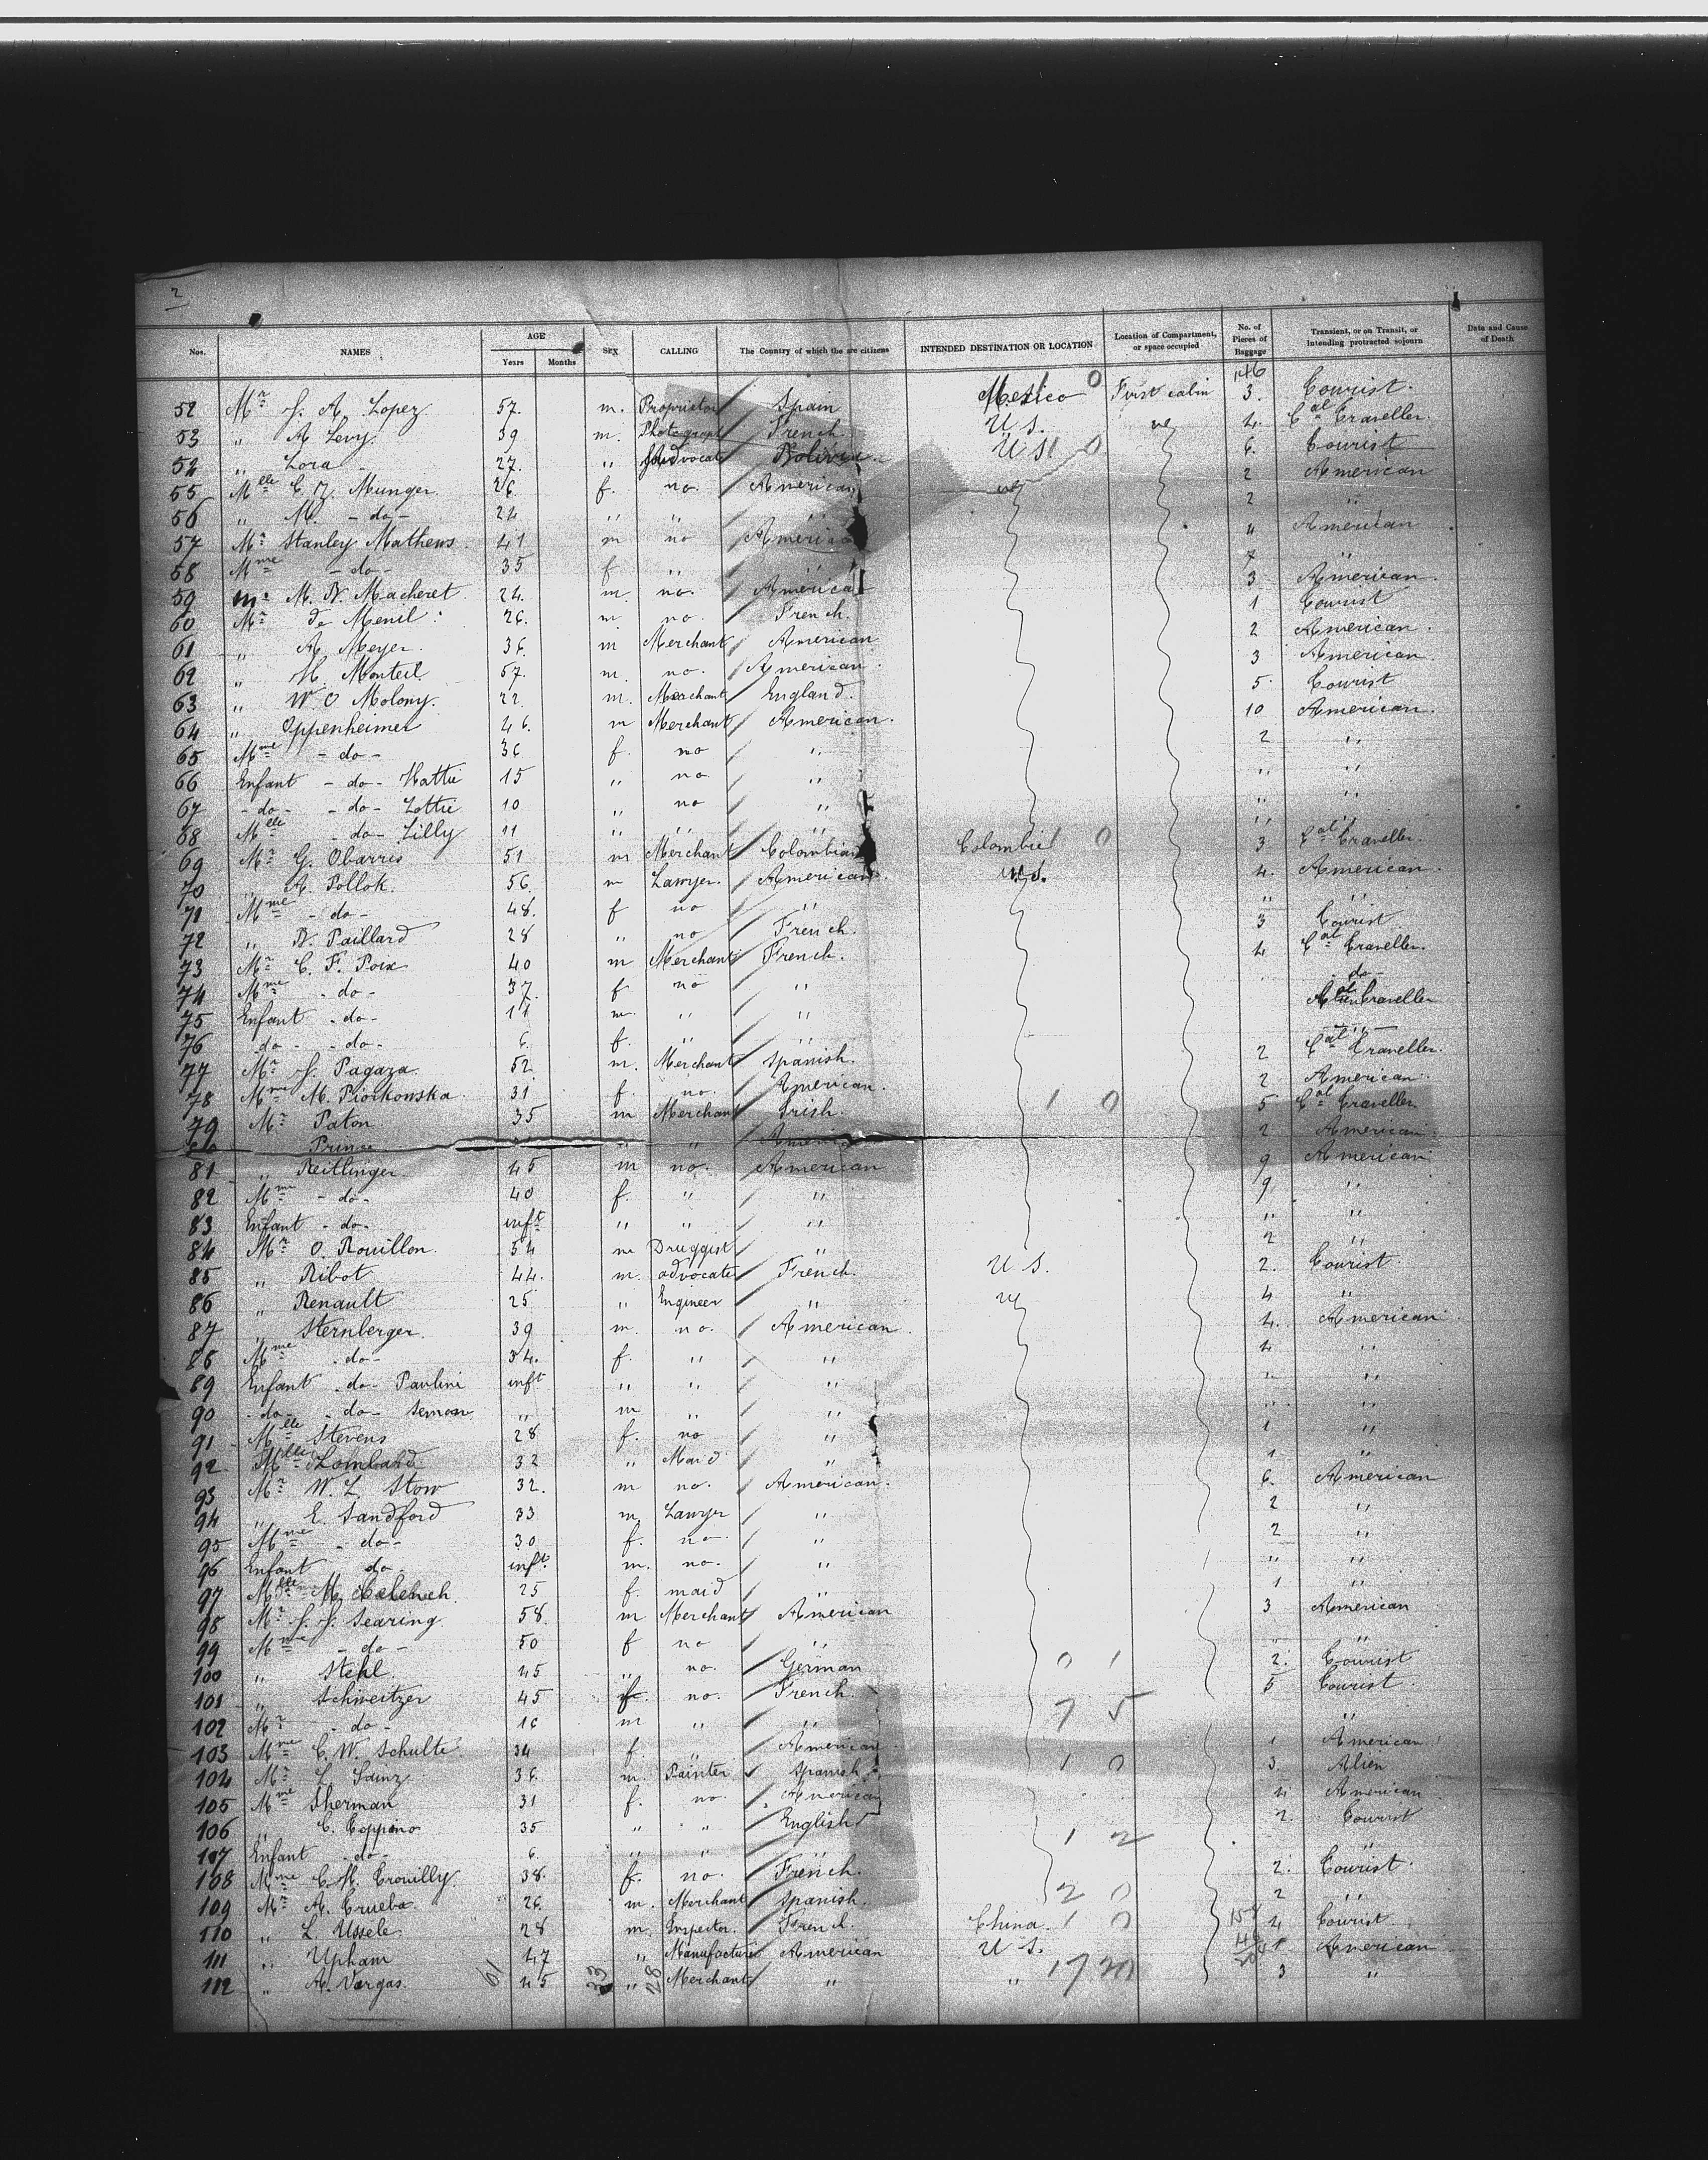 2
Nos. NAMES AGE Years Months SEX CALLING The Country of which the are citizens INTENDED DESTINATION OR LOCATION Location of Compartment, or space occupied No. of Pieces of Baggage Transient, or on Transit, or intending protracted sojourn Date and Cause of Death
146
52 Mr J. A. Lopez 57. m. Proprietor Spain Mexico 0 First cabin 3. Tourist.
53 " A. Levy. 39 m. Photograph French. U S. " 4. Cal Traveller
54 " Lora 27. " Advocate Bolivia U S 0 6. Tourist
55 Mlle C. Y. Munger. 26. f. no. American " 2 American
56 " M. - do - 24 " " " 2 "
57 Mr Stanley Mathews. 41 m no American 4 American
58 Mme - do - 35 f " " 7 "
59 Mr M. N. Macheret. 24. m. no. American 3 American.
60 Mr de Menil 26. m. no. French. 1 Tourist
61 " A. Meyer. 36. m Merchant American 2 American.
62 " H. Monteil 57. m. no. American. 3 American.
63 " W. O Molony. 22. m. Merchant England. 5. Tourist
64 " Oppenheimer 46. m Merchant American. 10 American.
65 Mme - do - 36 f. no " 2 "
66 Enfant - do - Hattie 15 " no " " "
67 - do - - do - Lottie 10 " no " " "
68 Mlle - do - Lilly 11 " " " " "
69 Mr G. Obarrio 51 m Merchant Colombian Colombie 0 3 Cal Traveller.
70 " A. Pollok. 56. m Lawyer. American. U.S. 4. American.
71 Mme - do - 48. f no " " "
72 " N. Paillard 28 " no French. 3 Tourist
73 Mr C. F. Poix 40 m Merchant French. 4 Cal Traveller.
74 Mme - do - 37. f no " - do -
75 Enfant - do - 11 m. " " Traveller
76 - do - - do - 6. f. " " "
77 Mr J. Pagaza. 52. m. Merchant Spanish. 2 Cal Traveller.
78 Mme M. Piorkowska. 31 f. no. American. 2 American.
79 Mr Paton. 35 m Merchant Irish. 1 0 5 Cal Traveller
80 Prince. " " American 2 American.
81 " Reitlinger 45 m no. American 9 American.
82 Mme - do - 40 f. " " 9 "
83 Enfant - do - inft " " " " "
84 Mr O. Rouillon. 54 m Druggist " 2 "
85 " Ribot 44. m. advocate French. U S. 2. Tourist.
86 " Renault 25 " Engineer " " 4 "
87 " Sternberger. 39 m. no. American. 4. American
88 Mme - do - 34. f. " " 4 "
89 Enfant - do - Pauline inft " " " " "
90 - do - - do - " m " " " "
91 Mlle Stevens 28 f. no " 1 "
92 Mlle Lombard 32 " Maid " 1 "
93 Mr W. L. Stow 32. m no. American. 6. American
94 " E. Sandford 33 m. Lawyer " 2 "
95 Mme - do - 30 f. no " 2 "
96 Enfant do - inft m. no. " " "
97 Mlle M. 25 f. maid " 1 "
98 Mr J. J. Searing. 58. m Merchant American 3 American
99 Mme - do - 50 f no " " "
100 " Stehl. 45 " no. German 0 1 2. Tourist
101 " Schweitzer 45 f. no. French. 7 5 5 Tourist.
102 Mr - do - 16 m " " "
103 Mme C. W. Schulte 34 f. " American 1 American
104 Mr L. Sainz 36. m. Painter Spanish. 1 0 3 Alien
105 Mme Sherman 31 f. no. American 4 American
106 " C. Coppino 35 " " English 1 2 2. Tourist
107 Enfant - do - 6. " " " "
108 Mme C. H. Trouilly. 38. f. no. French. 2. Tourist.
109 Mr A. Trueba. 26. m. Merchant Spanish. 2 0 2 "
110 " L. Ussele. 28 m. Inspector. French. China. 1 0 4 Tourist
111 " Upham 47 " Manufacturer American U S. American
112 " A. Vargas. 45 " Merchant " " 17 20 3 "
61 33 28